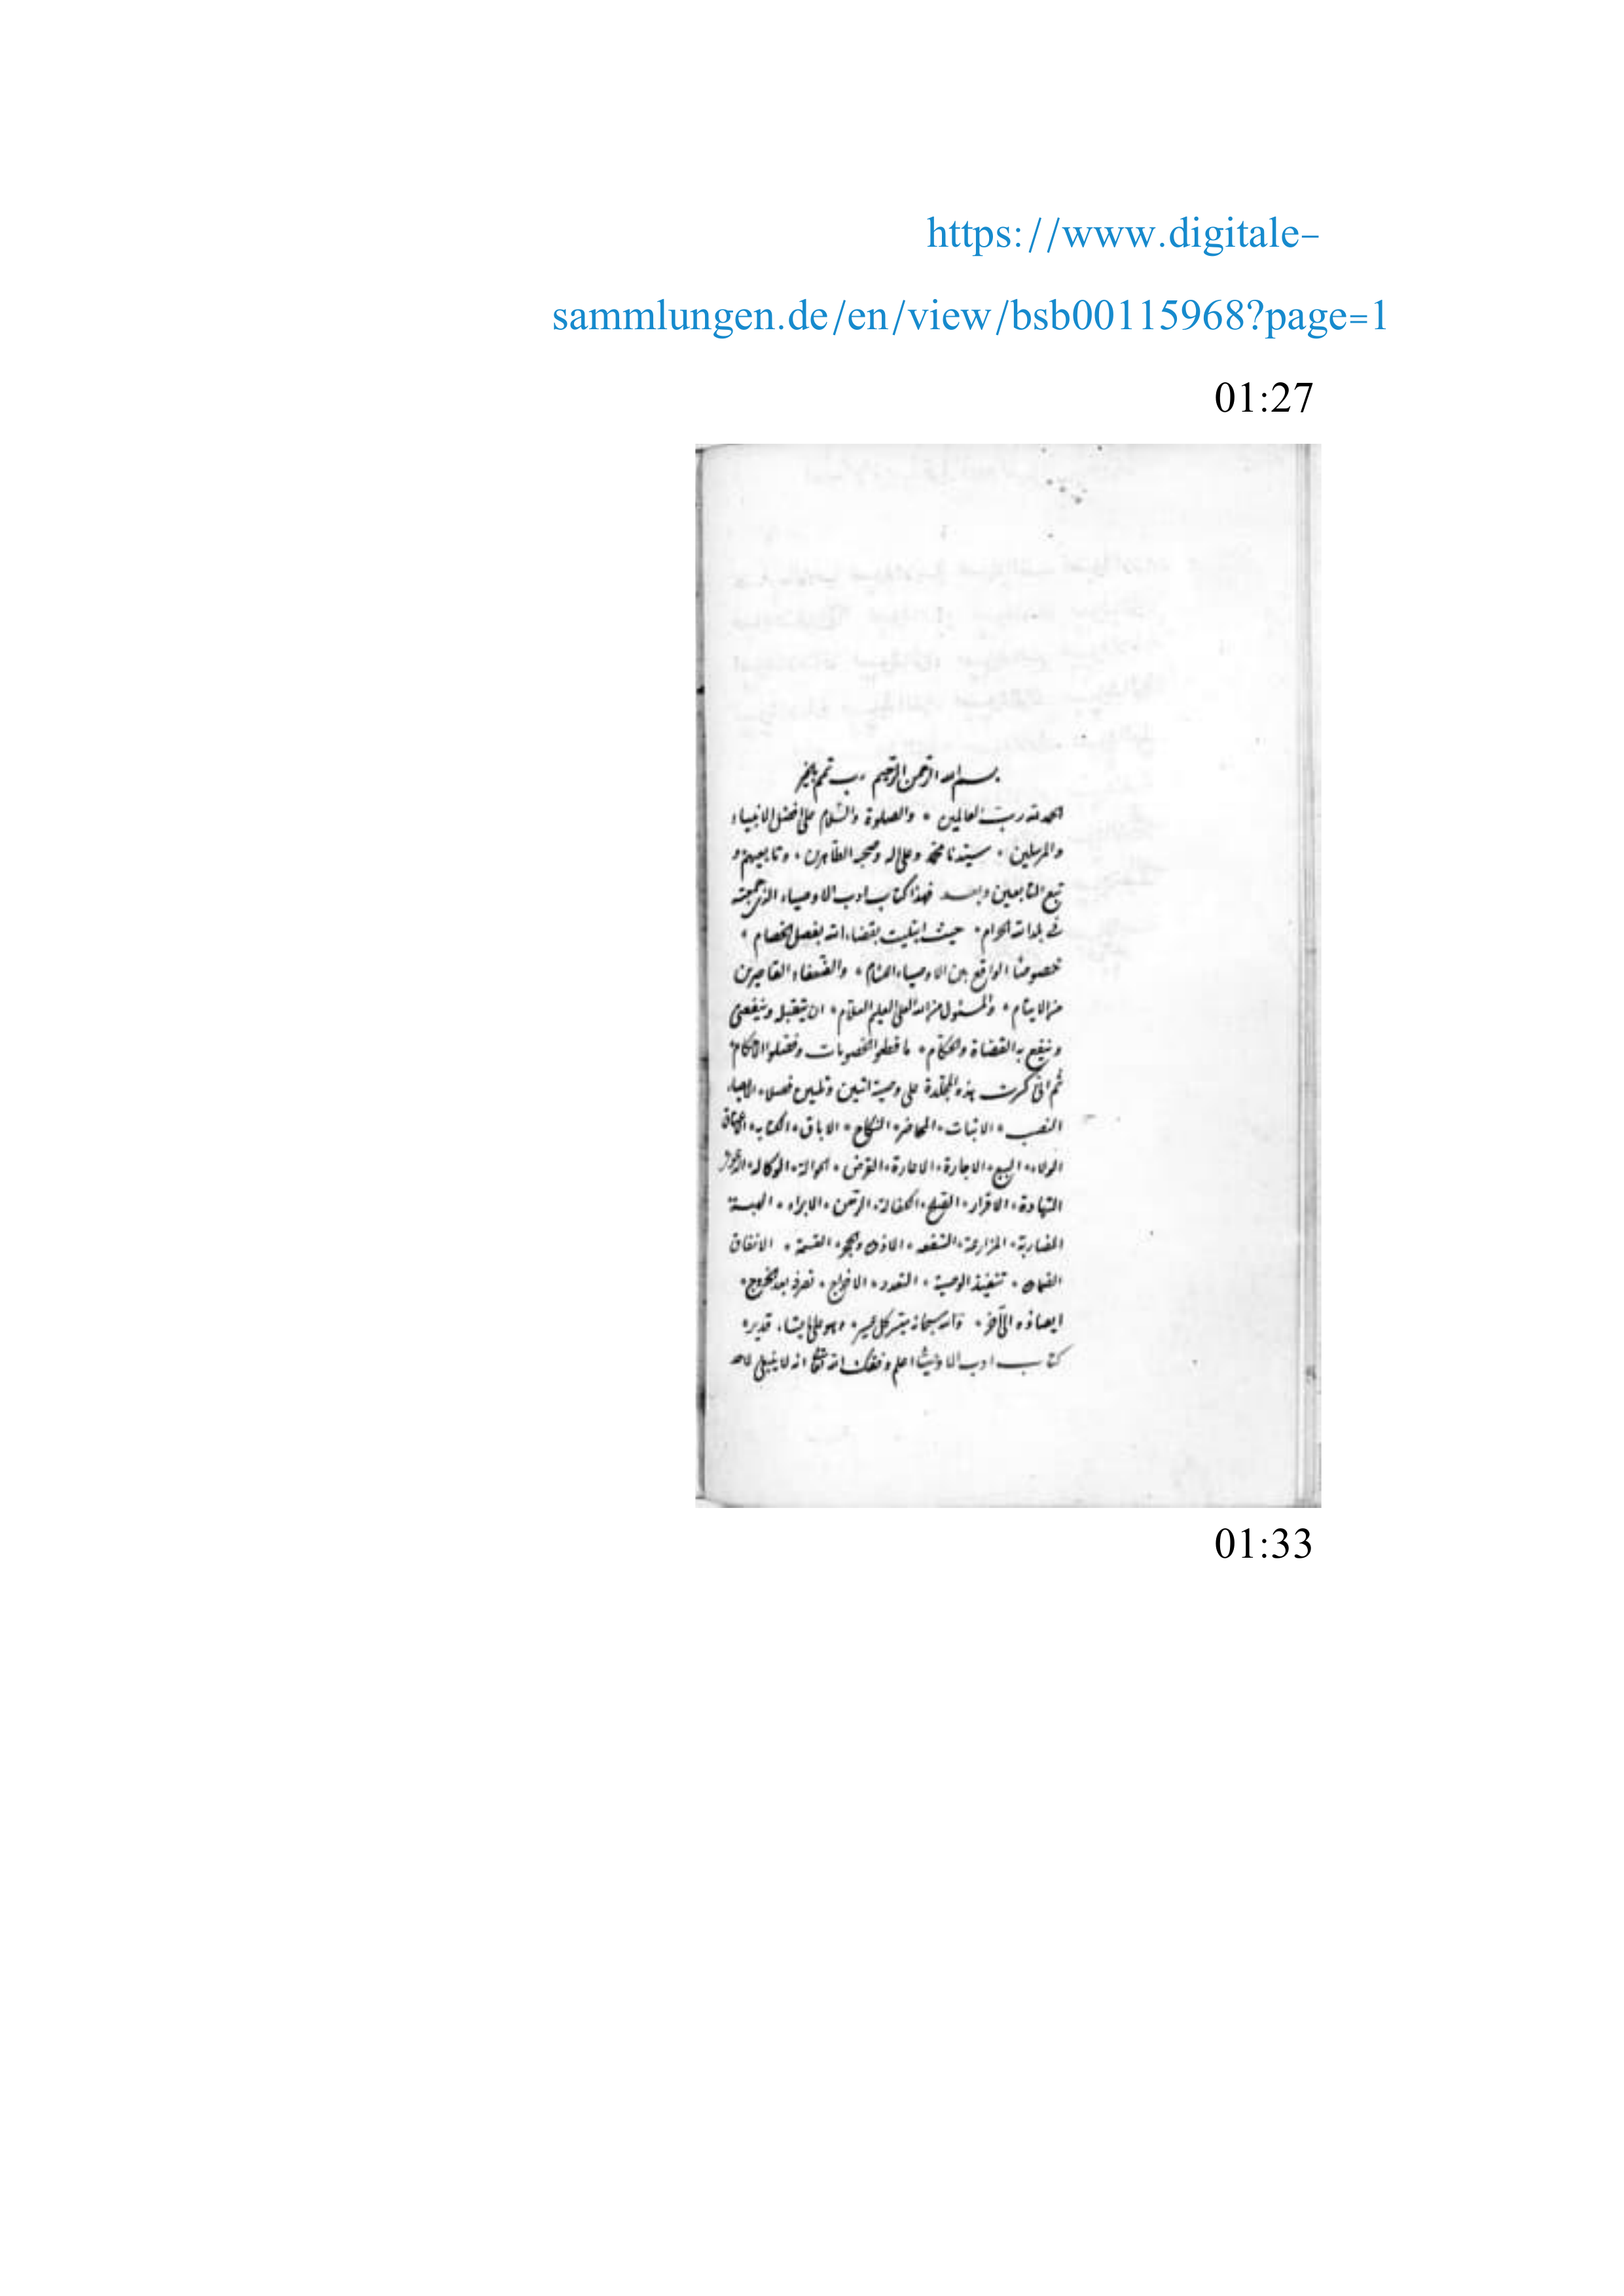 https://www.digitale-
sammlungen.de/en/view/bsb00115968?page=1
01:27
بسم الله الرحمن الرحيم رب تمم بالخير
الحمد لله رب العالمين والصلوة والسلام على افضل الانبياء
والمرسلين سيدنا محمد وعلى اله وصحبه الطاهرين وتابعيهم و
تبع التابعين وبعد فهذا كتاب ادب الاوصياء الذى جمعته
فى بلد الله الحرام حيث ابتليت بقضاء الله بفصل الخصام
خصوصا الواقع بين الاوصياء والضعفاء القاصرين
من الايتام والمسئول من الله العلى العليم العلام ان يتقبله وينفعنى
وينفع به القضاة والحكام ما قطعوا الخصومات وفصلوا الاحكام
ثم انى هذه المجلدة على اثنين وثلثين فصلا الايصاء
النصب الاثبات المحاضر النكاح الاباق الكتابه
الولاء البيع الاجارة الاعارة القرض الحوالة الوكالة الدعوى
الشهادة الاقرار الصلح الكفالة الرهن الابراء الهبة
المضاربة المزارعة الشفعه الاذن والحجر القسمة الانفاق
الضمان تنفيذ الوصية التعدد الاخراج تصرفه بعد الخروج
ايصاؤه الى آخر والله سبحانه ميسر كل عسير وهو على ما يشاء قدير
كتاب ادب الاوصياء اعلم وفقك الله تعالى انه لا ينبغى لاحد
01:33